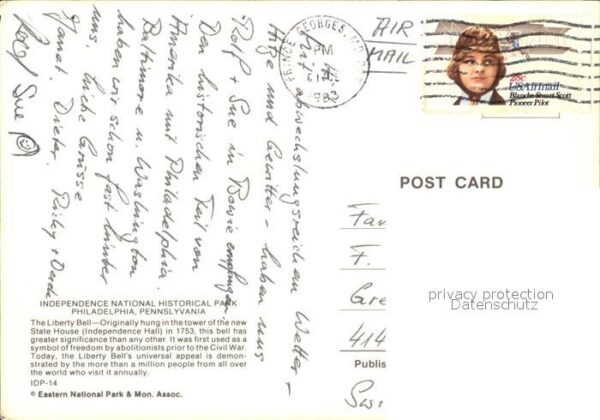 AIR
MAIL
PRINCE GEORGES, MD
PM
1983
28c
USAirmail
Blanche Stuart Scott
Pioneer Pilot
Mit abwechslungsreichem Wetter -
Hitze und Gewitter - haben uns
Rolf + Sue in Bowie empfangen.
Den historischen Teil von
Amerika mit Philadelphia,
Baltimore u. Washington
haben wir schon fast hinter
uns. Liebe Grüsse
Janet Dieter, Ricky + Derek
Rolf Sue
POST CARD
Fam
F.
Gre
414
privacy protection
Datenschutz
INDEPENDENCE NATIONAL HISTORICAL PARK
PHILADELPHIA, PENNSLYVANIA
The Liberty Bell—Originally hung in the tower of the new
State House (Independence Hall) in 1753, this bell has
greater significance than any other. It was first used as a
symbol of freedom by abolitionists prior to the Civil War.
Today, the Liberty Bell's universal appeal is demon-
strated by the more than a million people from all over
the world who visit it annually.
IDP-14
© Eastern National Park & Mon. Assoc.
Publis